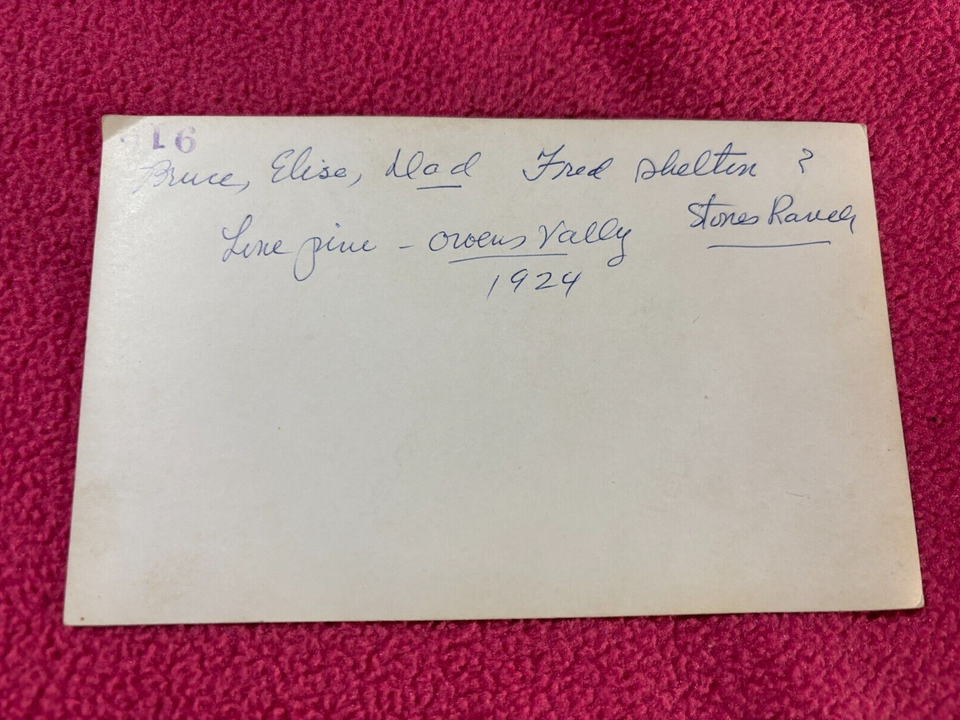 16
Bruce, Elise, Dad Fred Shelton ?
Stones Ranch
Lone pine - Owens Vally
1924